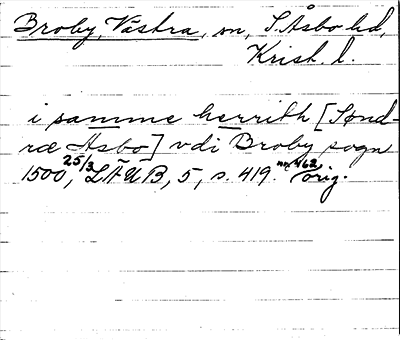 Broby, Västra, sn, S. Åsbo hd,
Krist. l.
i samme herrith [Sønd-
ræ Asbo] vdi Broby sogn
1500 25/3, LÄUB, 5, s. 419. nr 462 orig.